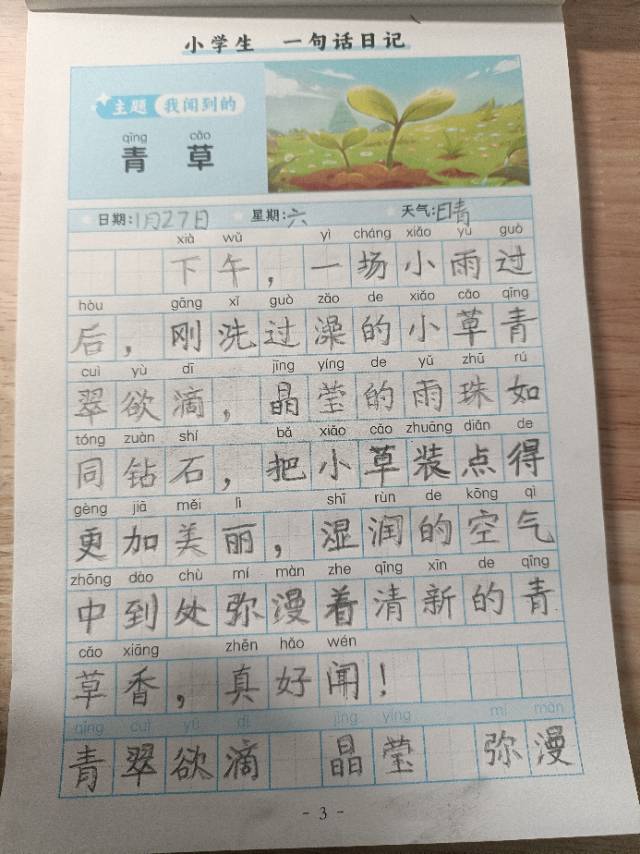 小学生 一句话日记
主题 我闻到的
qīng cǎo
青 草
日期：1月27日 星期：六 天气：晴
xià wǔ yì cháng xiǎo yǔ guò
下午，一场小雨过
hòu gāng xǐ guò zǎo de xiǎo cǎo qīng
后，刚洗过澡的小草青
cuì yù dī jīng yíng de yǔ zhū rú
翠欲滴，晶莹的雨珠如
tóng zuàn shí bǎ xiǎo cǎo zhuāng diǎn de
同钻石，把小草装点得
gèng jiā měi lì shī rùn de kōng qì
更加美丽，湿润的空气
zhōng dào chù mí màn zhe qīng xīn de qīng
中到处弥漫着清新的青
cǎo xiāng zhēn hǎo wén
草香，真好闻！
qīng cuì yù dī jīng yíng mí màn
青翠欲滴 晶莹 弥漫
- 3 -